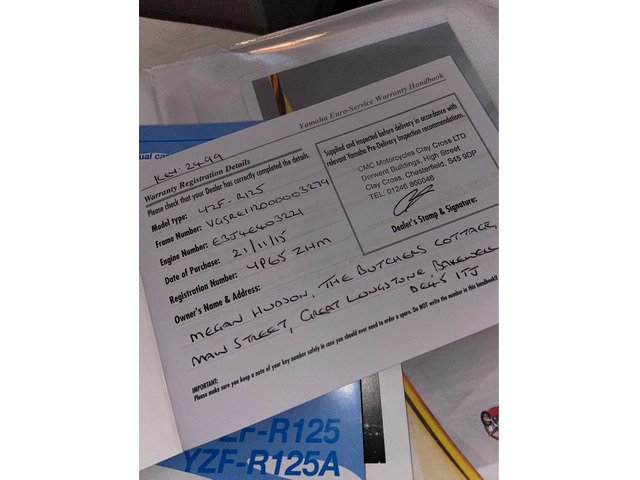 Yamaha Euro-Service Warranty Handbook
Key: 2499
Warranty Registration Details
Please check that your Dealer has correctly completed the details.
Model type: YZF-R125
Frame Number: VGSRE112000003279
Engine Number: E3J4E403221
Date of Purchase: 21/11/15
Registration Number: YP65 ZHM
Owner's Name & Address:
MEGAN HUDSON, THE BUTCHERS COTTAGE,
MAIN STREET, GREAT LONGSTONE, BAKEWELL
DE45 1TJ
Supplied and inspected before delivery in accordance with
relevant Yamaha Pre-Delivery Inspection recommendations.
CMC Motorcycles Clay Cross LTD
Derwent Buildings, High Street
Clay Cross, Chesterfield, S45 9DP
TEL: 01246 860046
Dealer's Stamp & Signature:
IMPORTANT:
Please make sure you keep a note of your key number safely in case you should ever need to order a spare. Do NOT write the number in this handbook!!
YZF-R125
YZF-R125A